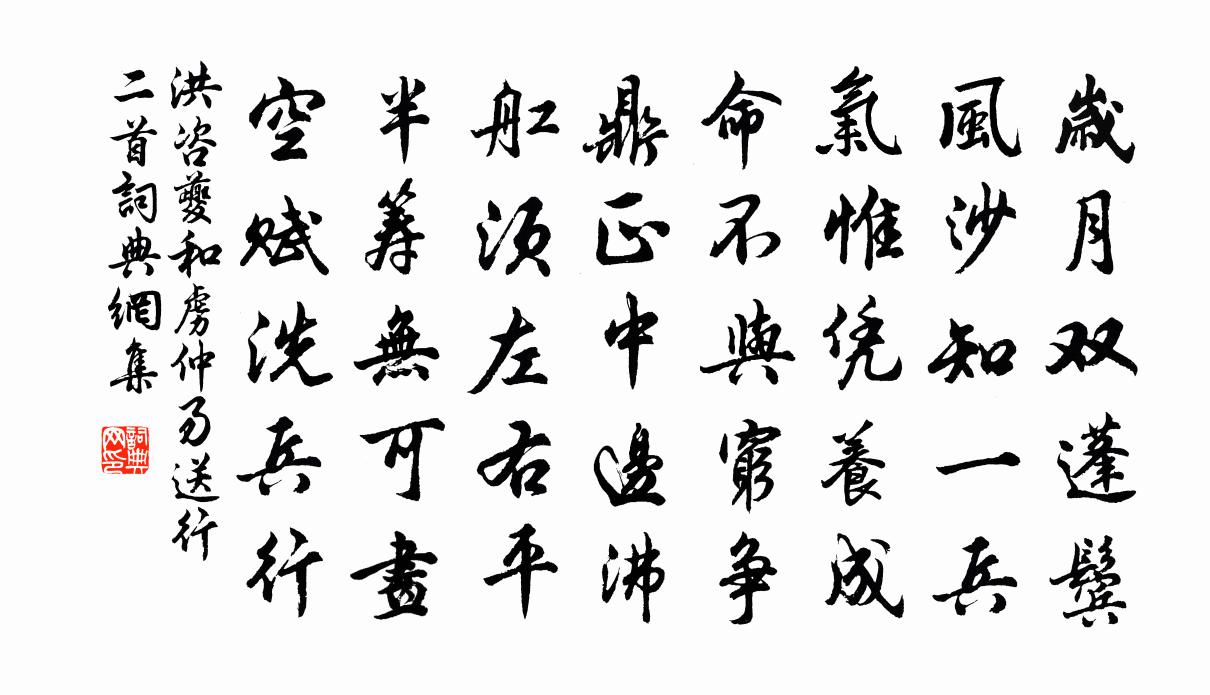 歲月双蓬鬢
風沙知一兵
氣惟凭養成
命不與窮爭
鼎正中邊沸
舡須左右平
半籌無可畫
空賦洗兵行
洪咨夔和虜仲易送行
二首詞典網集
詞典网印